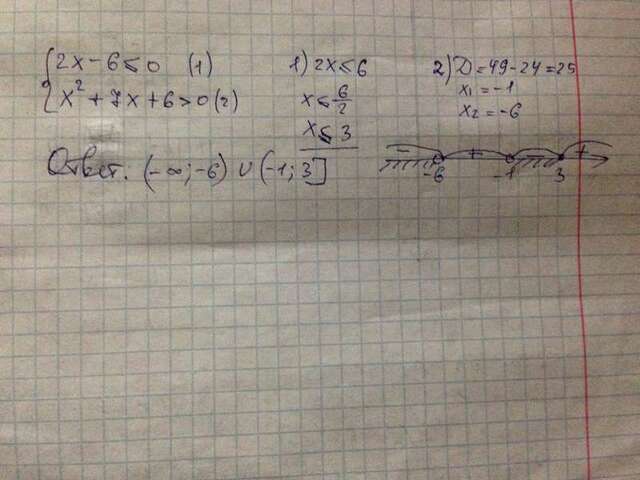 { 2x - 6 ≤ 0 (1)
x² + 7x + 6 > 0 (2)
1) 2x ≤ 6
x ≤ 6/2
x ≤ 3
2) D = 49 - 24 = 25
x₁ = -1
x₂ = -6
- + - +
-6 -1 3
Ответ. (-∞; -6) ∪ (-1; 3]